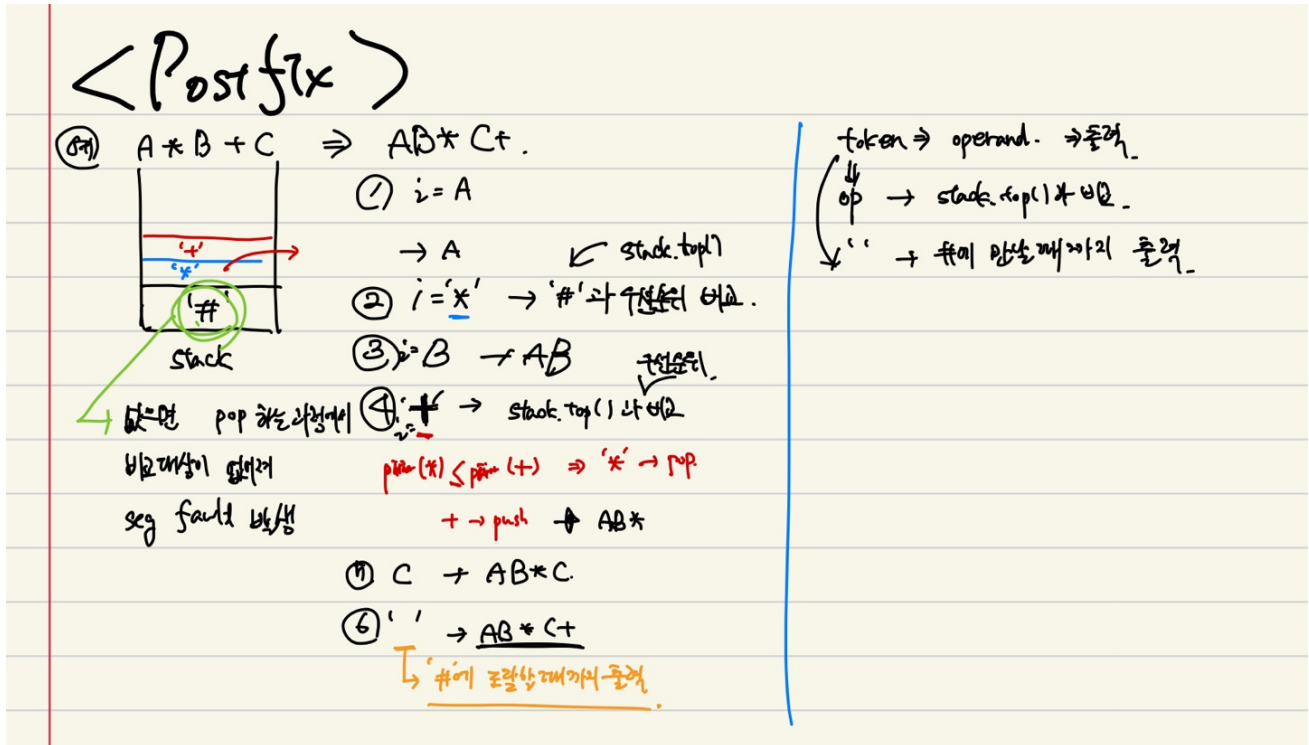 <Postfix>
예) A * B + C ⇒ AB* C+.
① i = A
→ A
stack.top()
② i = '*' → '#'과 우선순위 비교.
③ i = B → AB
우선순위
④ i = '+' → stack.top()과 비교
(*) ≤ (+) ⇒ '*' → pop.
+ → push → AB*
⑤ C → AB*C.
⑥ ' ' → AB * C+
'#'에 도달할 때까지 출력.
'+'
'*'
'#'
stack
없으면 pop 하는 과정에서
비교대상이 없어져
seg fault 발생
token ⇒ operand. ⇒ 출력
op → stack.top()와 비교.
' ' → #에 만날 때까지 출력